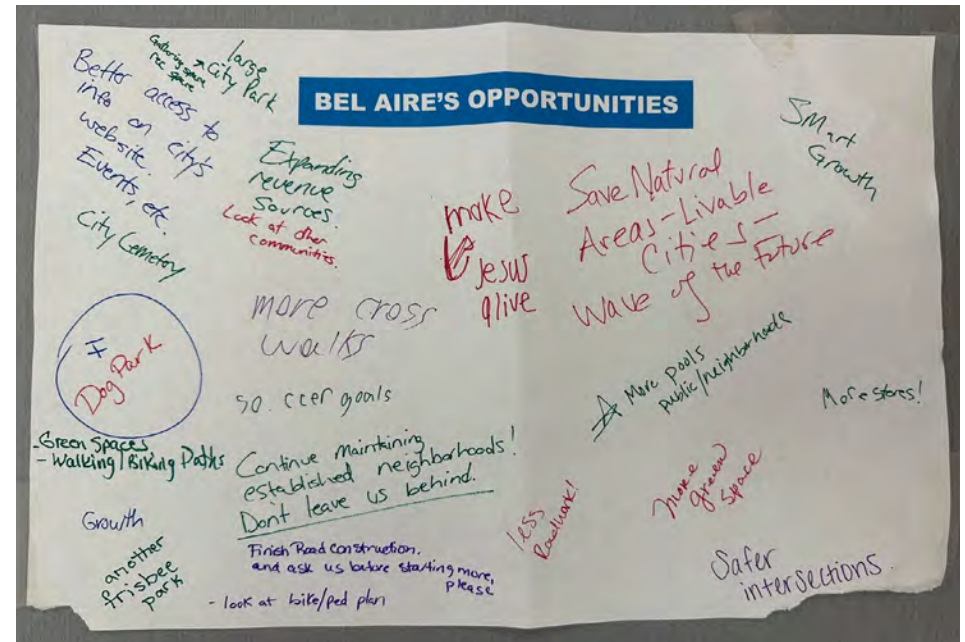 BEL AIRE'S OPPORTUNITIES
large
City Park
Gathering space
rec space
Better access to
info on city's
website.
Events, etc.
City Cemetory
Expanding
revenue
Sources.
Look at other
communities.
make
Jesus
alive
Save Natural
Areas-Livable
Cities-
Wave of the Future
Smart
Growth
more cross
walks
Dog Park
so. ccer goals
More pools
public/neighborhoods
More stores!
-Green Spaces
- Walking/Biking Paths
Continue maintaining
established neighborhoods!
Don't leave us behind.
Growth
another
frisbee
park
Finish Road Construction.
and ask us before starting more,
please
- look at bike/ped plan
less
Roadwork!
more
green
space
Safer
intersections.